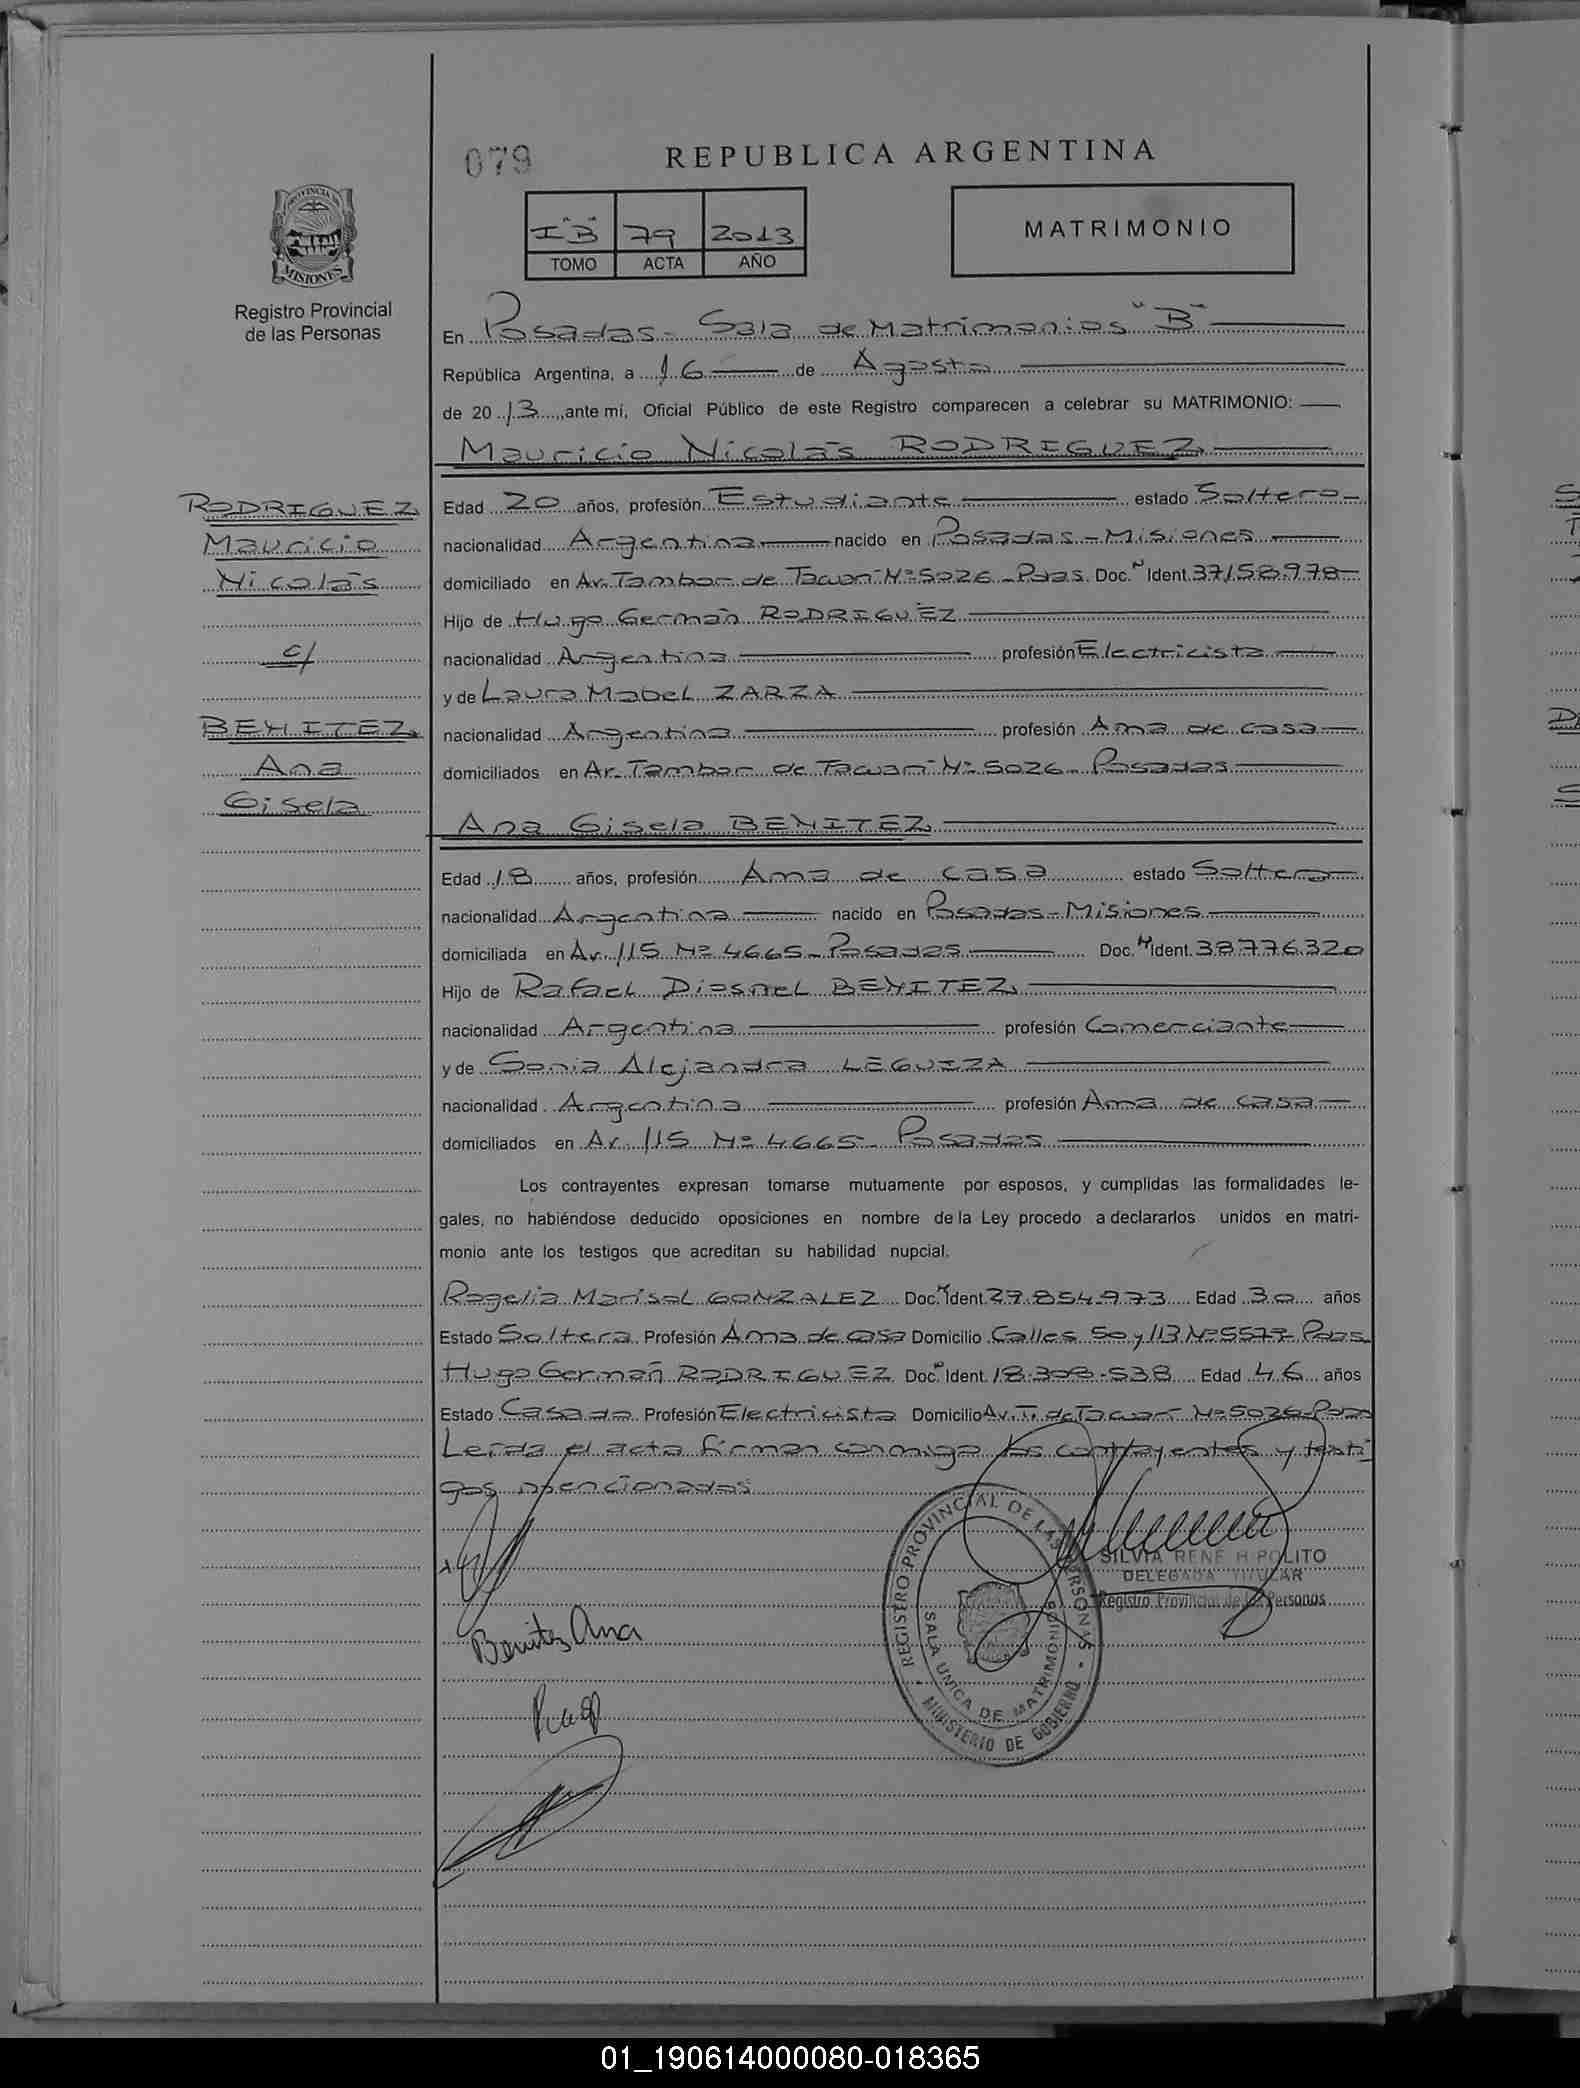 079
REPUBLICA ARGENTINA
PROVINCIA DE
MISIONES
Registro Provincial
de las Personas
I "B" 79 2013
TOMO ACTA AÑO
MATRIMONIO
En Posadas - Sala de Matrimonios "B"
República Argentina, a 16 de Agosto
de 2013, ante mí, Oficial Público de este Registro comparecen a celebrar su MATRIMONIO:
Mauricio Nicolás RODRIGUEZ
RODRIGUEZ
Mauricio
Nicolás
c/
BENITEZ
Ana
Gisela
Edad 20 años, profesión Estudiante estado Soltero
nacionalidad Argentina nacido en Posadas - Misiones
domiciliado en Av. Tambor de Tacuarí Nº 5026 - Pdas. Doc. N Ident. 37.158.978
Hijo de Hugo Germán RODRIGUEZ
nacionalidad Argentina profesión Electricista
y de Laura Mabel ZARZA
nacionalidad Argentina profesión Ama de casa
domiciliados en Av. Tambor de Tacuarí Nº 5026 - Posadas
Ana Gisela BENITEZ
Edad 18 años, profesión Ama de casa estado Soltera
nacionalidad Argentina nacido en Posadas - Misiones
domiciliada en Av. 115 Nº 4665 - Posadas Doc. N Ident. 38.776.320
Hijo de Rafael Diosnel BENITEZ
nacionalidad Argentina profesión Comerciante
y de Sonia Alejandra LEGUIZA
nacionalidad Argentina profesión Ama de casa
domiciliados en Av. 115 Nº 4665 - Posadas
Los contrayentes expresan tomarse mutuamente por esposos, y cumplidas las formalidades le-
gales, no habiéndose deducido oposiciones en nombre de la Ley procedo a declararlos unidos en matri-
monio ante los testigos que acreditan su habilidad nupcial.
Rogelia Marisol GONZALEZ Doc. N Ident. 29.854.973 Edad 30 años
Estado Soltera Profesión Ama de casa Domicilio Calles 50 y 113 Nº 5579 Pdas.
Hugo Germán RODRIGUEZ Doc. N Ident. 18.308.538 Edad 46 años
Estado Casado Profesión Electricista Domicilio Av. T. de Tacuarí Nº 5026 Pdas
Leída el acta firman conmigo los contrayentes y testi
gos mencionados
REGISTRO PROVINCIAL DE LAS PERSONAS
SALA UNICA DE MATRIMONIOS
MINISTERIO DE GOBIERNO
SILVIA RENE HIPOLITO
DELEGADA TITULAR
Registro Provincial de las Personas
Benitez Ana
01_190614000080-018365